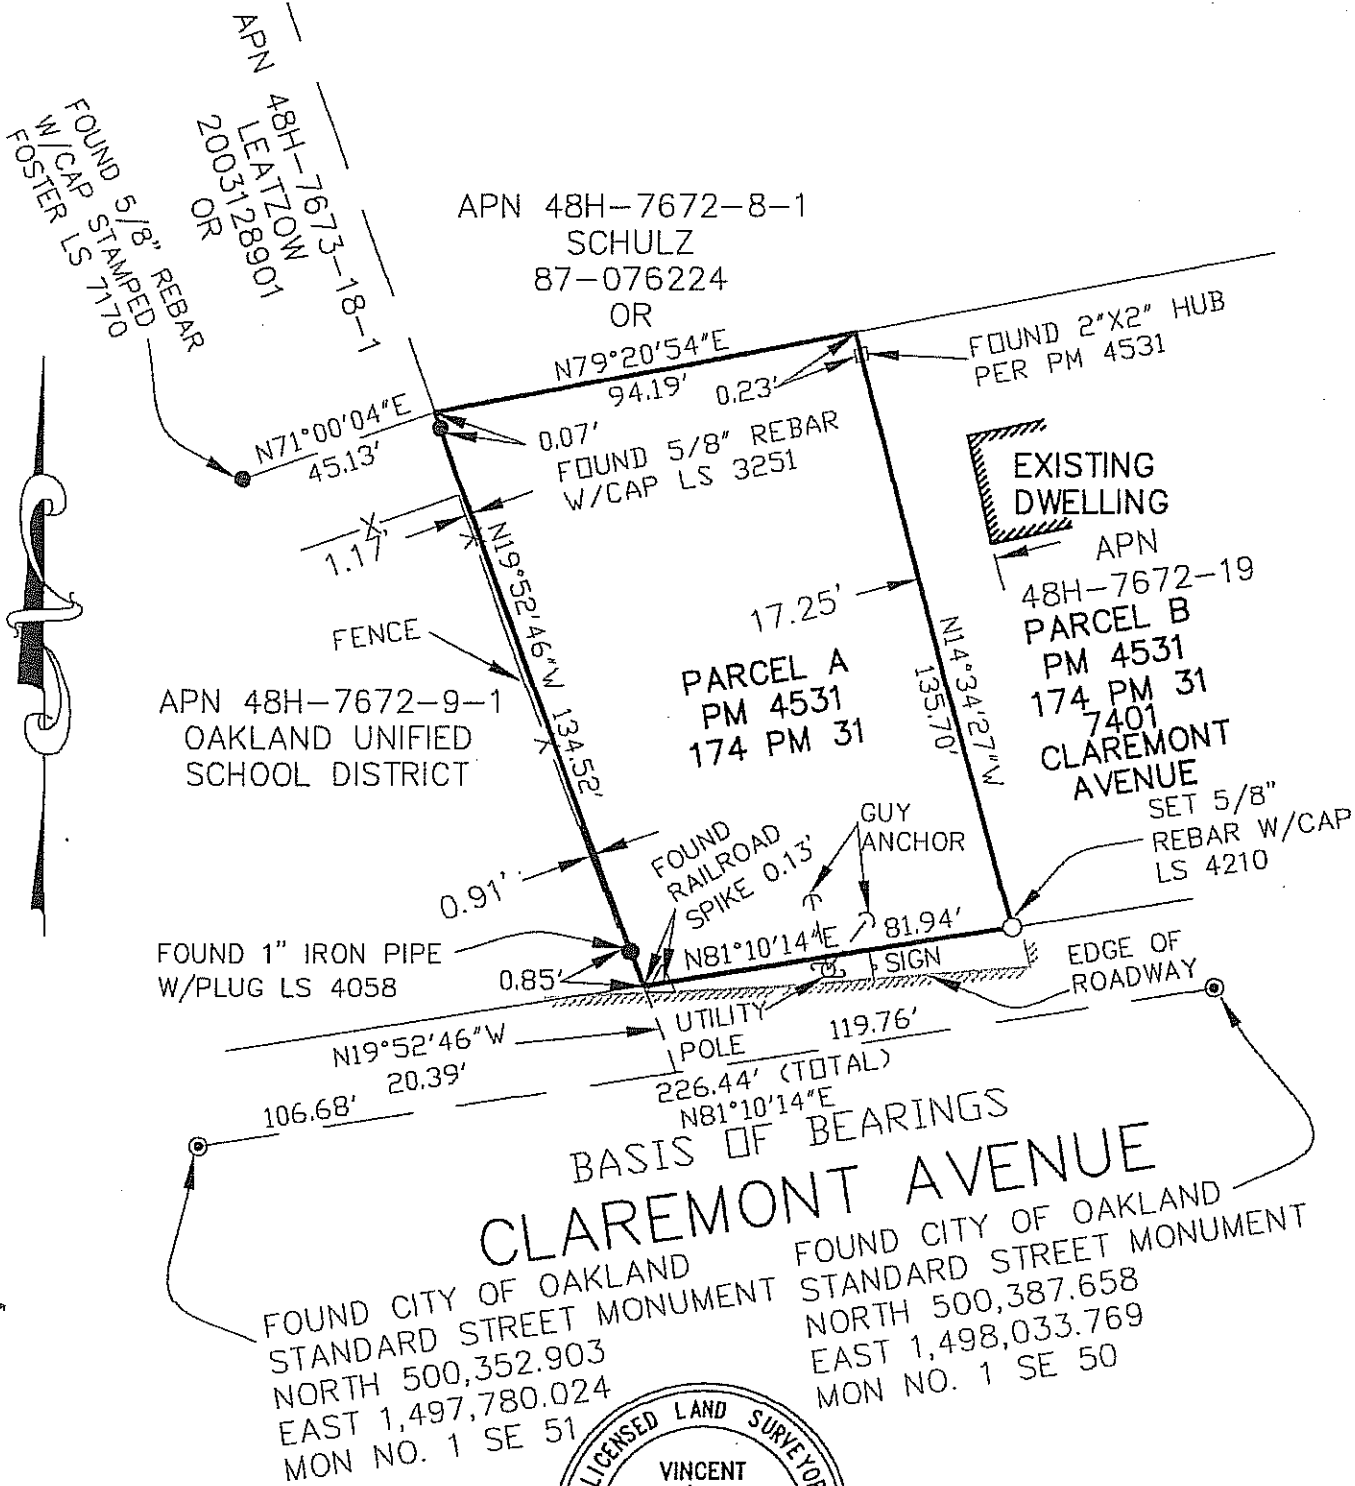 APN 48H-7673-18-1
LEATZOW
2003128901
OR
FOUND 5/8" REBAR
W/CAP STAMPED
FOSTER LS 7170
APN 48H-7672-8-1
SCHULZ
87-076224
OR
N79°20'54"E
94.19'
0.23'
FOUND 2"X2" HUB
PER PM 4531
N71°00'04"E
45.13'
0.07'
FOUND 5/8" REBAR
W/CAP LS 3251
EXISTING
DWELLING
X
1.17'
X
N19°52'46"W 134.52'
17.25'
FENCE
X
APN
48H-7672-19
PARCEL B
PM 4531
174 PM 31
7401
CLAREMONT
AVENUE
N14°34'27"W
135.70'
PARCEL A
PM 4531
174 PM 31
APN 48H-7672-9-1
OAKLAND UNIFIED
SCHOOL DISTRICT
SET 5/8"
REBAR W/CAP
LS 4210
GUY
ANCHOR
FOUND
RAILROAD
SPIKE 0.13'
0.91'
FOUND 1" IRON PIPE
W/PLUG LS 4058
0.85'
N81°10'14"E
81.94'
SIGN
EDGE OF
ROADWAY
UTILITY
POLE
N19°52'46"W
20.39'
119.76'
106.68'
226.44' (TOTAL)
N81°10'14"E
BASIS OF BEARINGS
CLAREMONT AVENUE
FOUND CITY OF OAKLAND
STANDARD STREET MONUMENT
NORTH 500,352.903
EAST 1,497,780.024
MON NO. 1 SE 51
FOUND CITY OF OAKLAND
STANDARD STREET MONUMENT
NORTH 500,387.658
EAST 1,498,033.769
MON NO. 1 SE 50
LICENSED LAND SURVEYOR
VINCENT